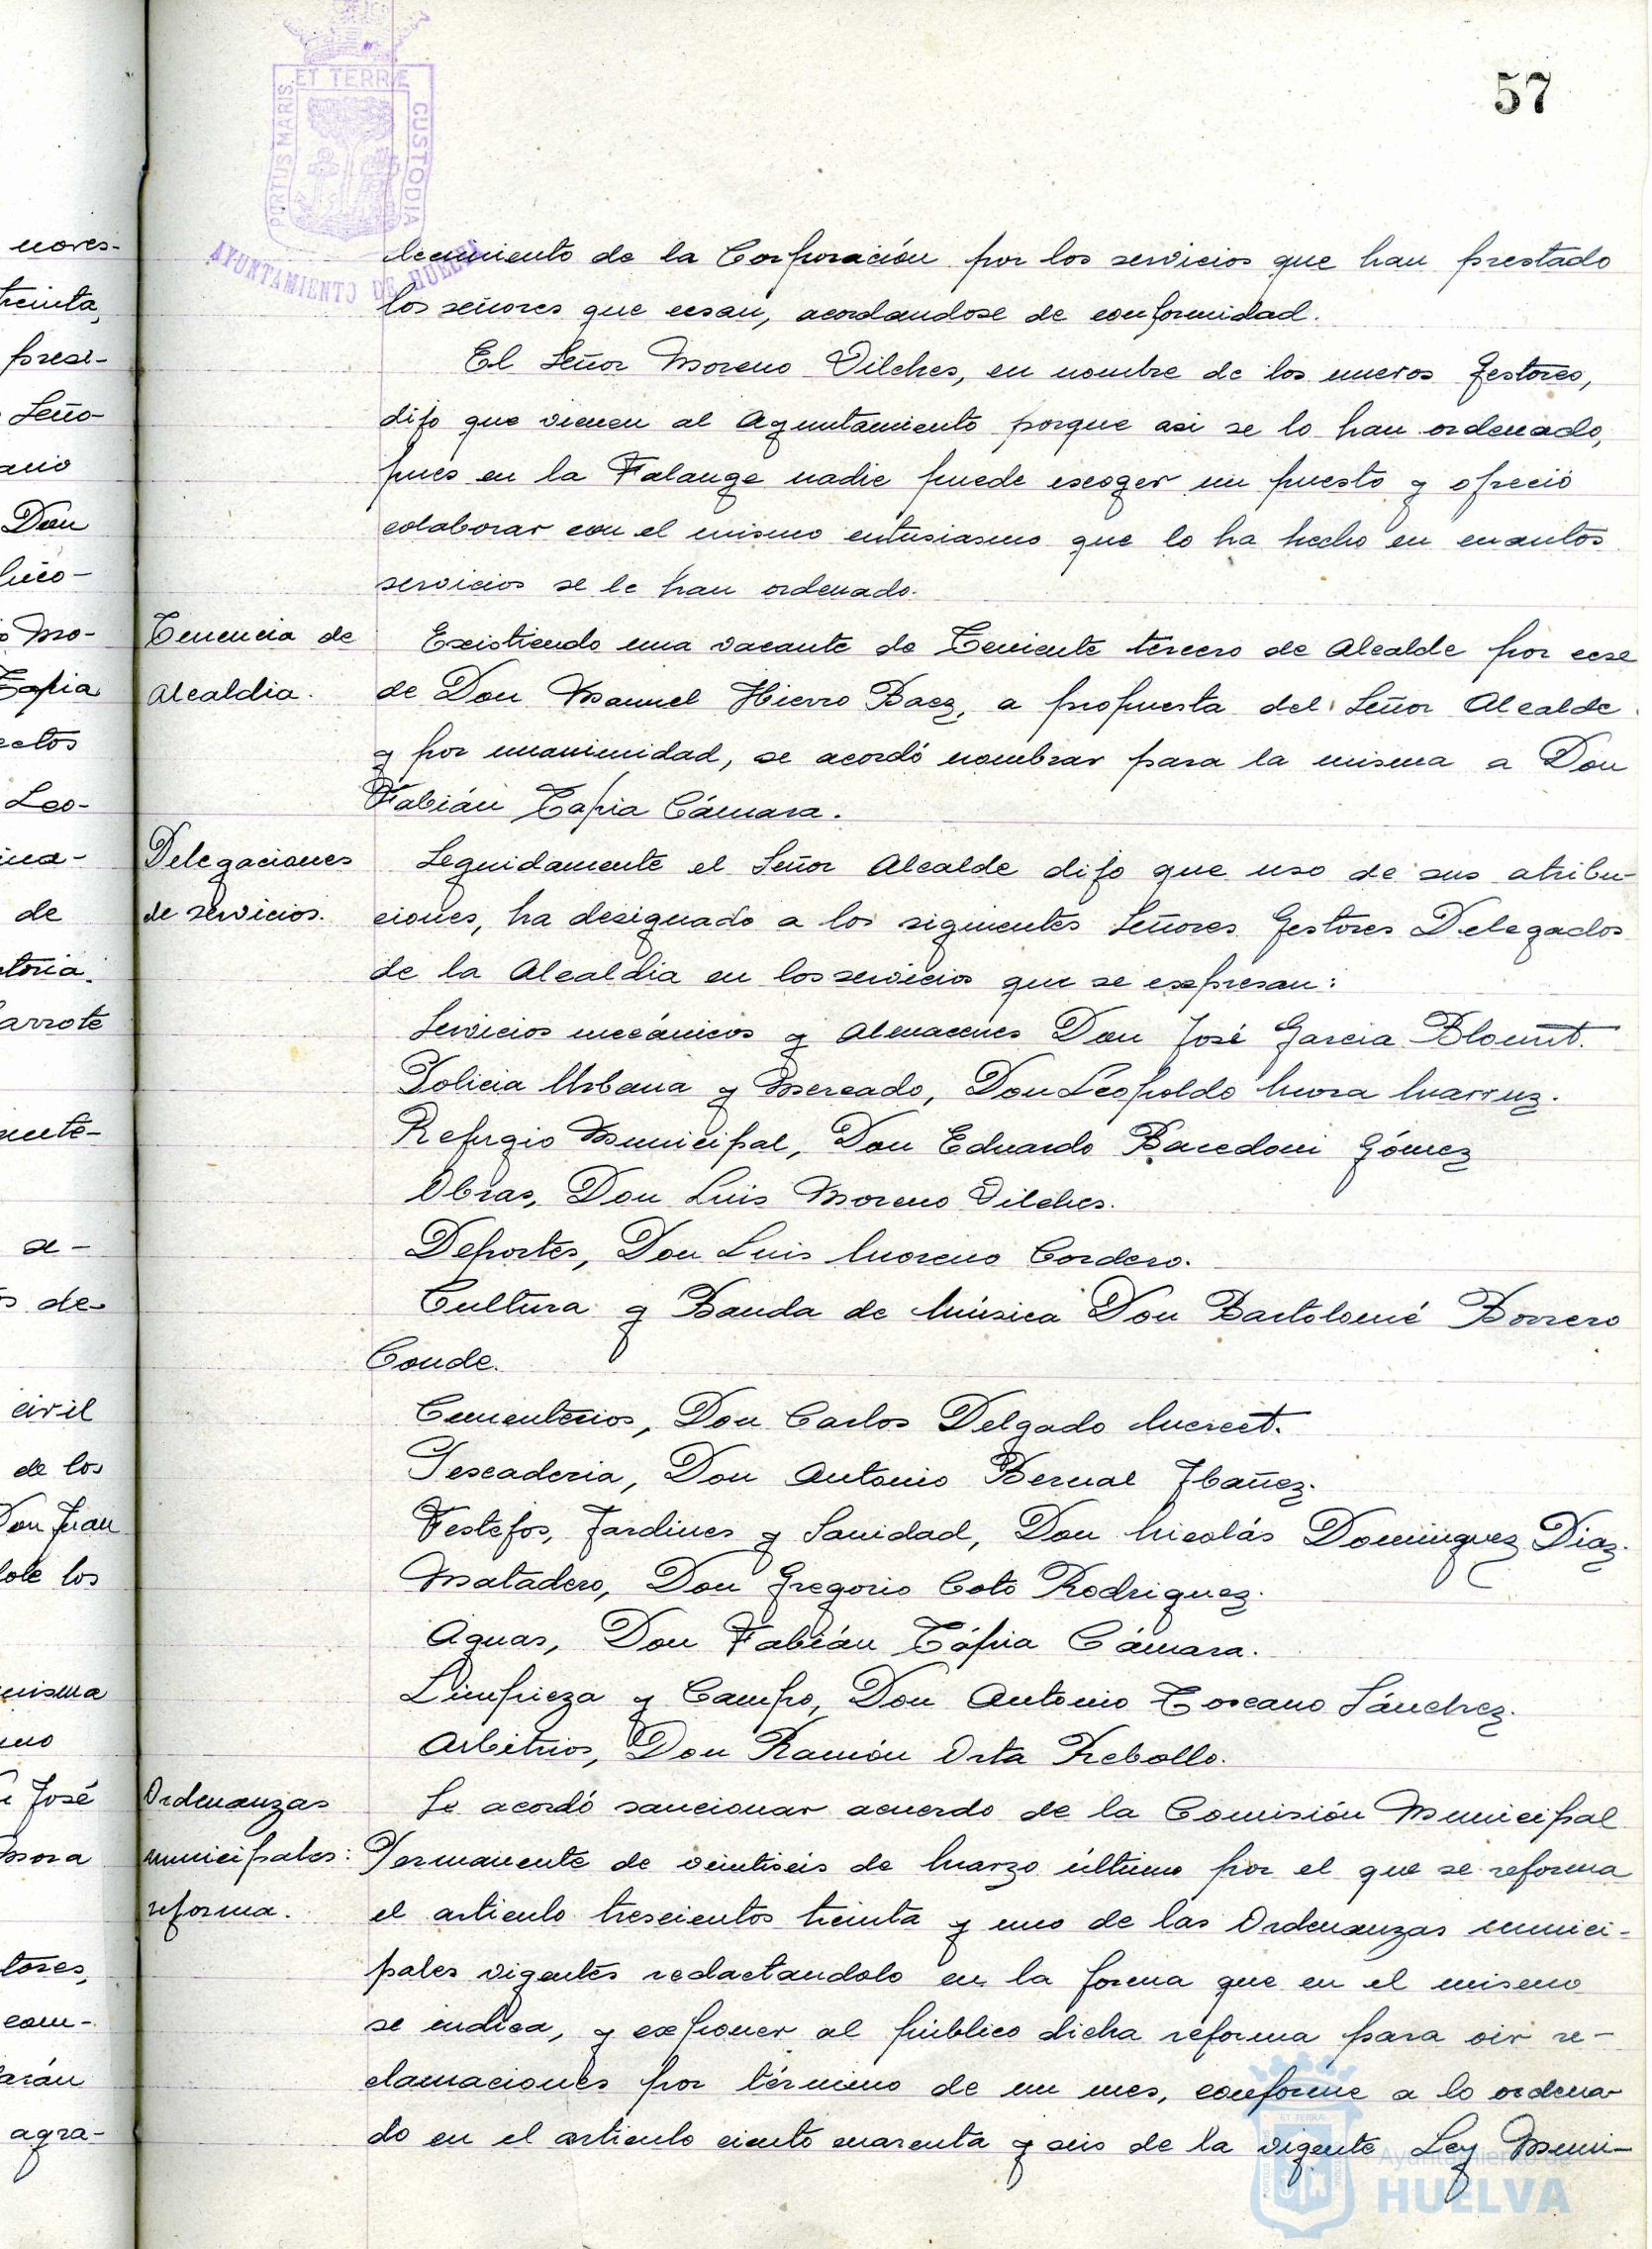 57
PORTUS MARIS ET TERRÆ CUSTODIA
AYUNTAMIENTO DE HUELVA
lecimiento de la Corporación por los servicios que han prestado
los señores que cesan, acordandose de conformidad.
El Señor Moreno Vilches, en nombre de los nuevos gestores,
dijo que vienen al Ayuntamiento porque asi se lo han ordenado,
pues en la Falange nadie puede escoger un puesto y ofreció
colaborar con el mismo entusiasmo que lo ha hecho en cuantos
servicios se le han ordenado.
Tenencia de
Alcaldia.
Existiendo una vacante de Teniente tercero de Alcalde por cese
de Don Manuel Hierro Baez, a propuesta del Señor Alcalde
y por unanimidad, se acordó nombrar para la misma a Don
Fabián Tapia Cámara.
Delegaciones
de servicios.
Seguidamente el Señor Alcalde dijo que uso de sus atribu-
ciones, ha designado a los siguientes Señores Gestores Delegados
de la Alcaldia en los servicios que se expresan:
Servicios mecánicos y Almacenes Don José Garcia Blount.
Policia Urbana y Mercado, Don Leopoldo Mora Marruz.
Refugio Municipal, Don Eduardo Bacedoni Gómez
Obras, Don Luis Moreno Vilches.
Deportes, Don Luis Moreno Cordero.
Cultura y Banda de Música Don Bartolomé Borrero
Conde.
Cementerios, Don Carlos Delgado Mercet.
Pescaderia, Don Antonio Bernal Ibañez.
Festejos, Jardines y Sanidad, Don Nicolás Dominguez Diaz.
Matadero, Don Gregorio Coto Rodriguez.
Aguas, Don Fabián Tápia Cámara.
Limpieza y Campo, Don Antonio Toscano Sánchez.
Arbitrios, Don Ramón Orta Rebollo.
Ordenanzas
municipales:
reforma.
Se acordó sancionar acuerdo de la Comisión Municipal
Permanente de veintiseis de Marzo último por el que se reforma
el articulo trescientos treinta y uno de las Ordenanzas munici-
pales vigentes redactandolo en la forma que en el mismo
se indica, y exponer al público dicha reforma para oir re-
clamaciones por término de un mes, conforme a lo ordena-
do en el articulo ciento cuarenta y seis de la vigente Ley Muni-
Ayuntamiento de
HUELVA
nores-
treinta,
presi-
Seño-
ario
Don
o Mo-
Tapia
ectos
Leo-
de
toria.
arrote
mente-
a-
s de-
civil
de los
Don Juan
los
misma
José
Mora
tores,
com-
arán
agra-